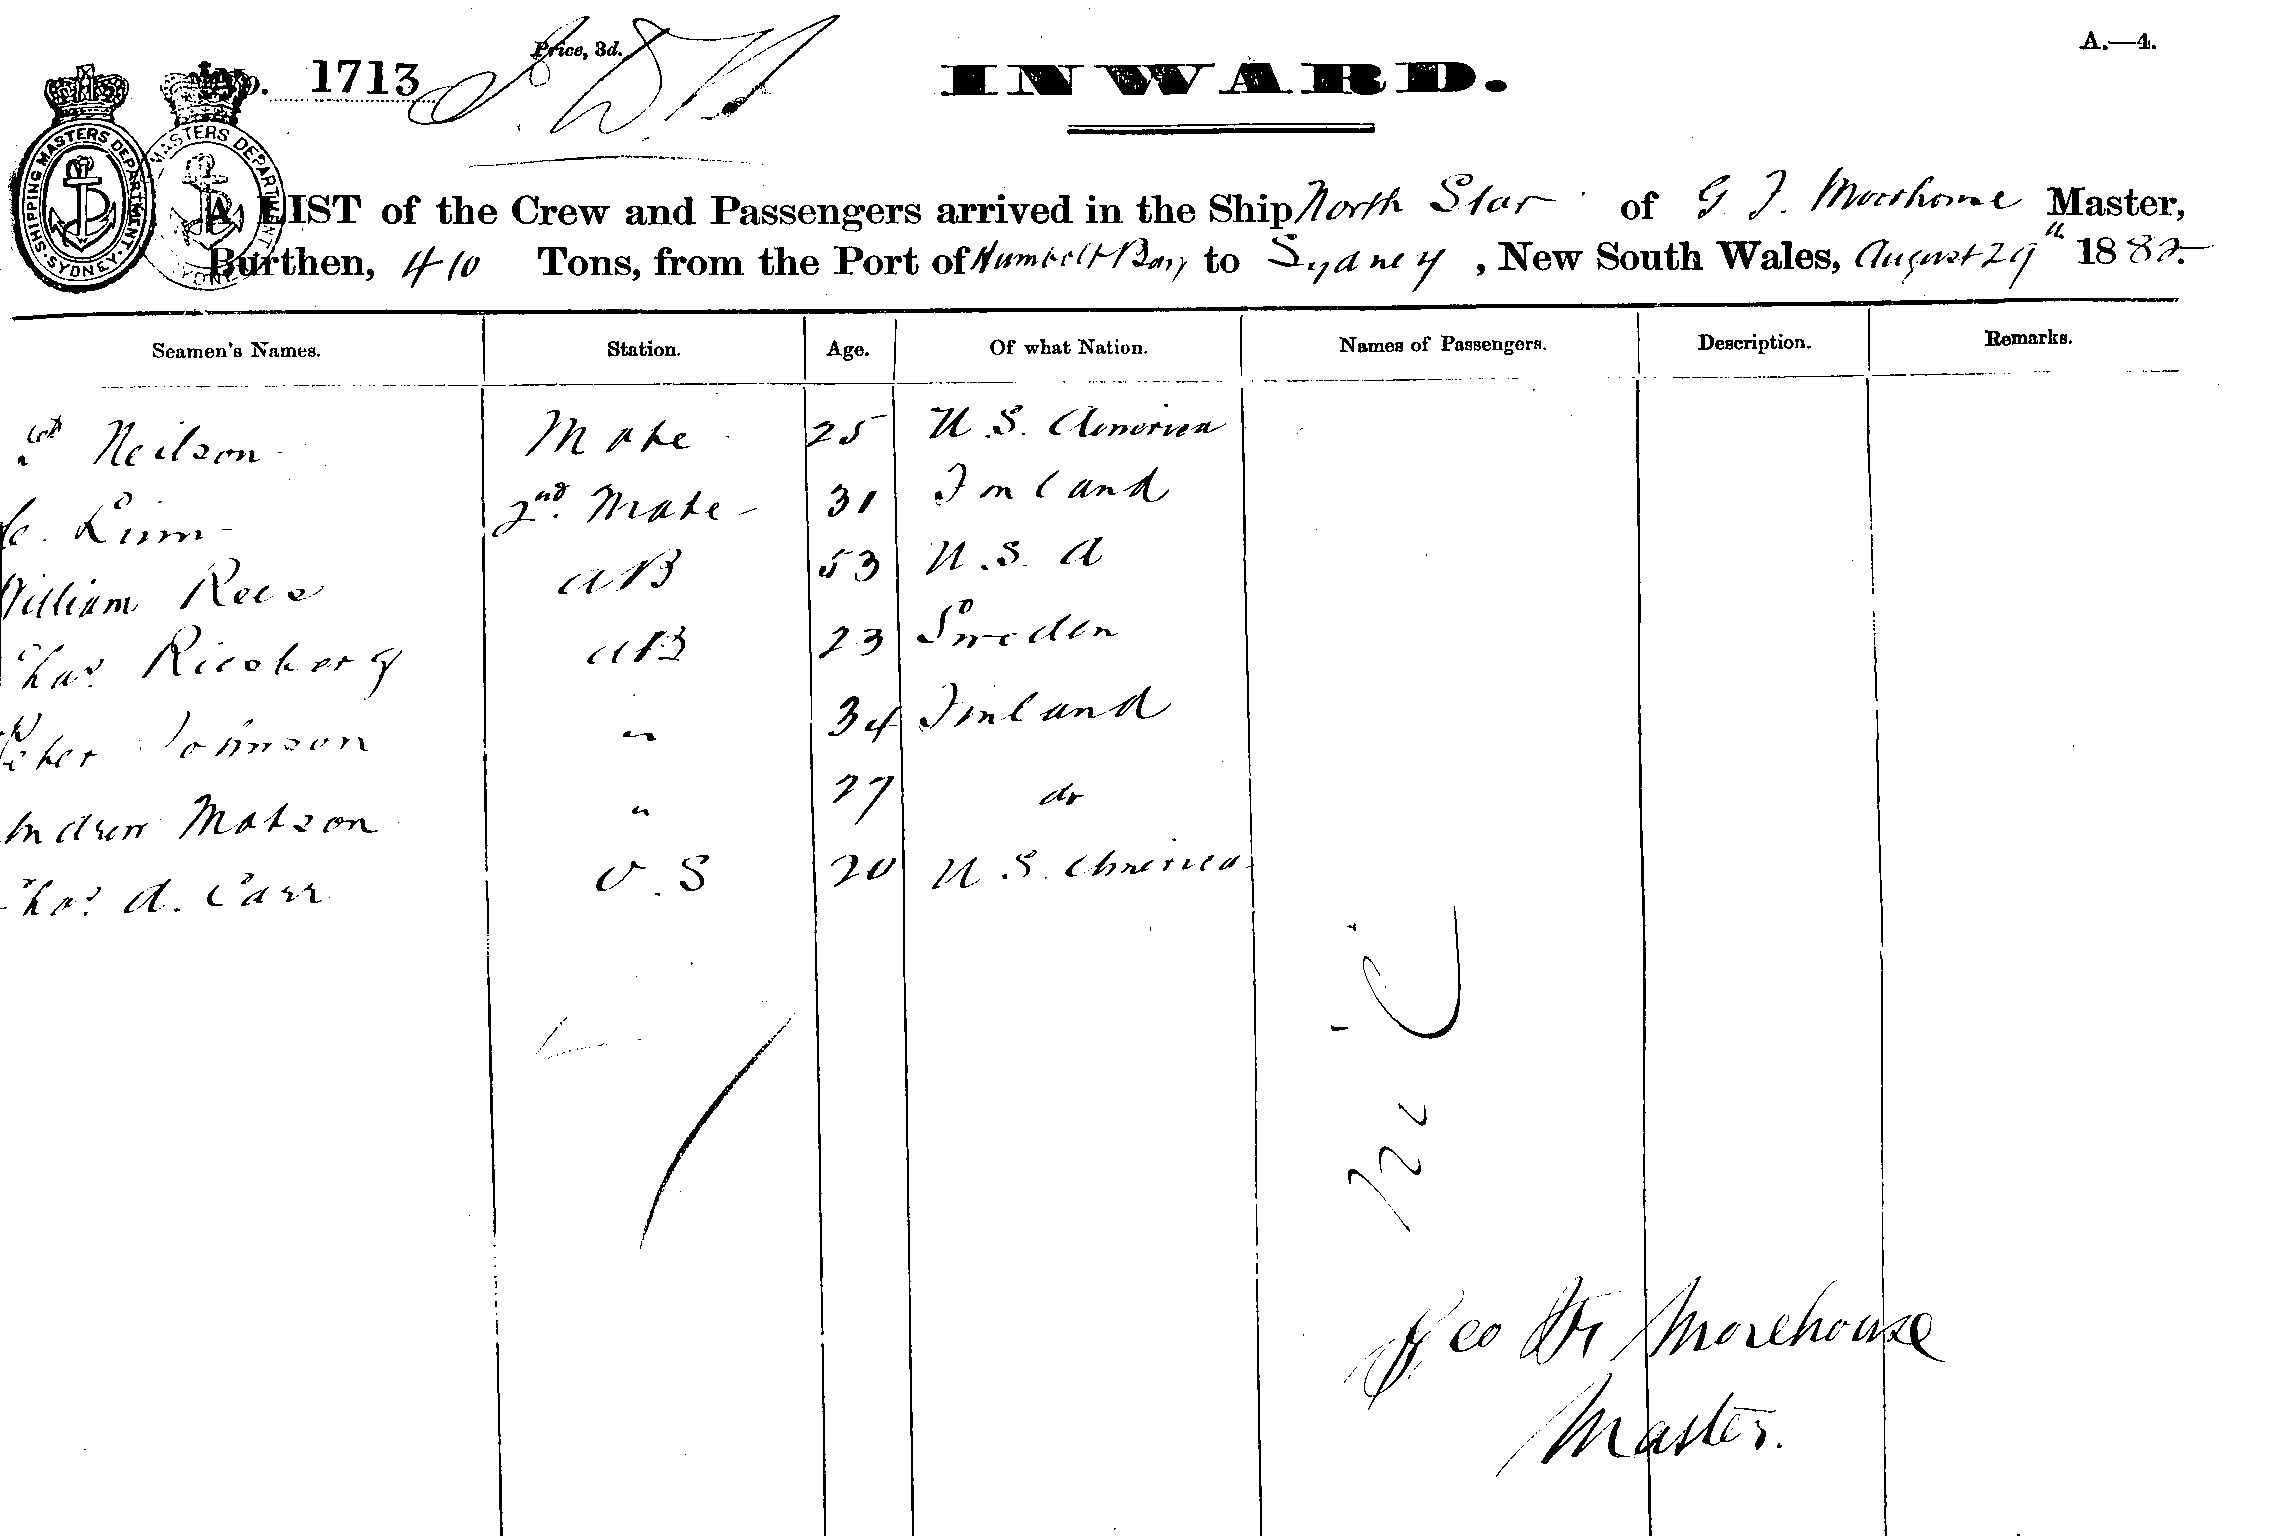 A.—4.
Price, 3d.
No. 1713
INWARD.
SHIPPING MASTERS DEPARTMENT
SYDNEY
MASTERS DEPARTMENT
SYDNEY
A LIST of the Crew and Passengers arrived in the Ship North Star of G Master,
Burthen, 410 Tons, from the Port of Humbolt Bay to Sydney, New South Wales, August 29th 1882.
Seamen's Names. Station. Age. Of what Nation. Names of Passengers. Description. Remarks.
Neilson Mate 25 U.S. America
C. Linn 2nd. Mate 31 Finland
William Rees AB 53 U.S. A
Chas. Ricoberg AB 23 Sweden
Peter Johnson " 34 Finland
Andrew Matson " 27 do
Chas. A. Carr O.S 20 U.S. America
nil
Geo Morehouse
Master.